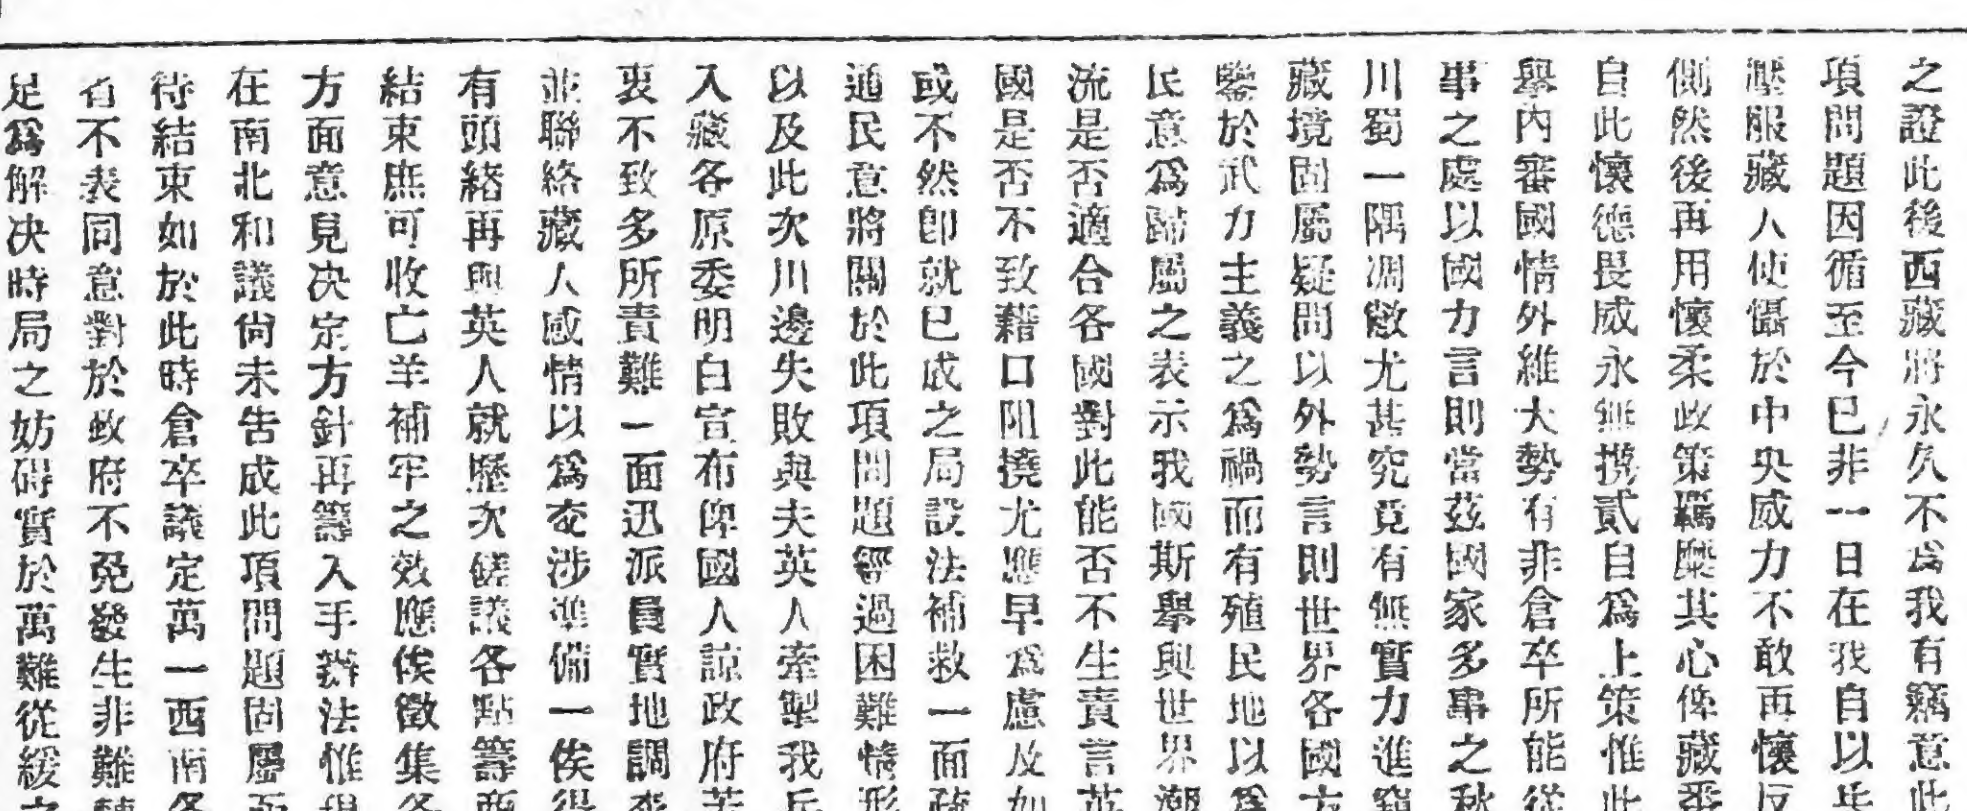 之證此後西藏將永久不爲我有竊意此
項問題因循至今已非一日在我自以兵
壓服藏人使懾於中央威力不敢再懷反
側然後再用懷柔政策羈縻其心俾藏番
自此懷德畏威永無攜貳自爲上策惟此
舉內審國情外維大勢有非倉卒所能從
事之處以國力言則當茲國家多事之秋
川蜀一隅凋敝尤甚究竟有無實力進窺
藏境固屬疑問以外勢言則世界各國方
鑒於武力主義之爲禍而有殖民地以爲
民意爲歸屬之表示我國斯舉與世界潮
流是否適合各國對此能否不生責言英
國是否不致藉口阻撓尤應早爲慮及如
或不然卽就已成之局設法補救一面疏
通民意將關於此項問題經過困難情形
以及此次川邊失敗與夫英人牽掣我兵
入藏各原委明白宣布俾國人諒政府苦
衷不致多所責難一面迅派員實地調查
並聯絡藏人感情以爲交涉準備一俟得
有頭緒再與英人就歷次磋議各點籌商
結束庶可收亡羊補牢之效應俟徵集各
方面意見決定方針再籌入手辦法惟現
在南北和議尙未告成此項問題固屬而
待結束如於此時倉卒議定萬一西南各
省不表同意對於政府不免發生非難轉
足爲解決時局之妨碍實於萬難從緩之